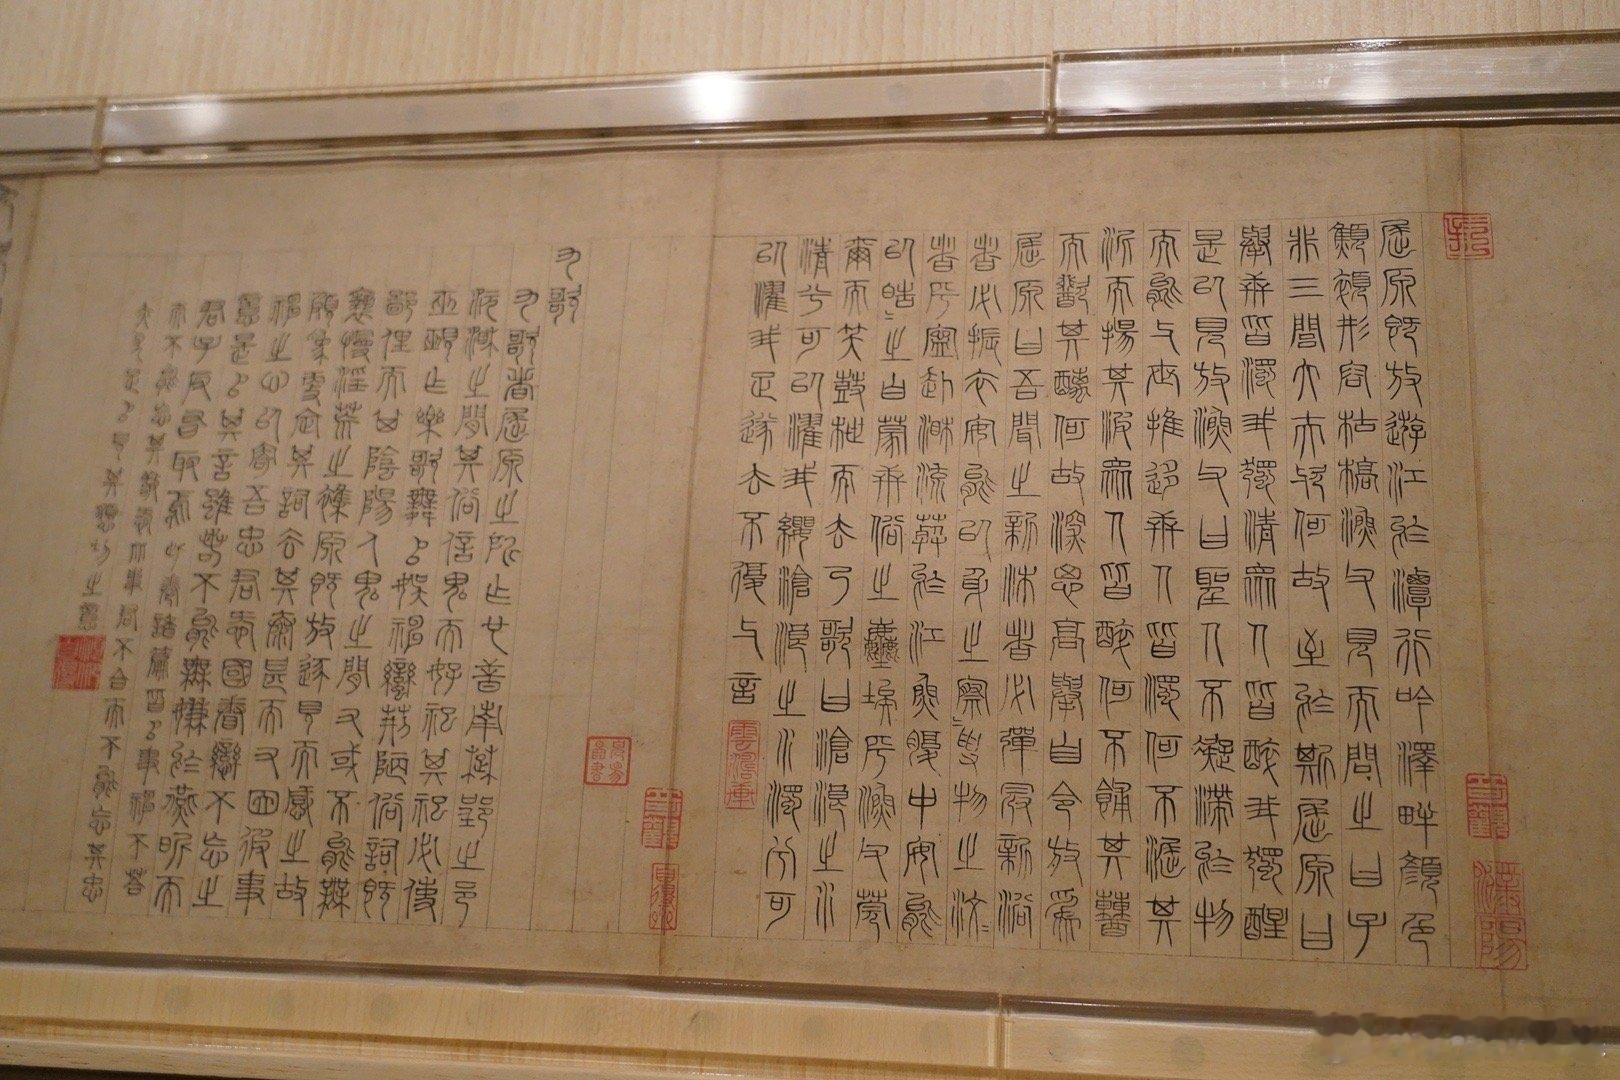 屈原既放遊江於潭行吟澤畔顏色
顦顇形容枯槁漁父見而問之曰子
非三閭大夫與何故至於斯屈原曰
舉世皆濁我獨清衆人皆醉我獨醒
是以見放漁父曰聖人不凝滯於物
而能與世推移世人皆濁何不淈其
泥而揚其波衆人皆醉何不餔其糟
而歠其醨何故深思高舉自令放爲
屈原曰吾聞之新沐者必彈冠新浴
者必振衣安能以身之察〻受物之汶〻
者乎寧赴湘流葬於江魚腹中安能
以皓〻之白蒙世俗之塵埃乎漁父莞
爾而笑鼓枻而去乃歌曰滄浪之水
清兮可以濯我纓滄浪之水濁兮可
以濯我足遂去不復與言
九歌
九歌者屈原之所作也昔南楚郢之邑
沅湘之間其俗信鬼而好祀其祀必使
巫覡作樂歌舞以娛神蠻荊陋俗詞既
鄙俚而其陰陽人鬼之間又或不能無
褻慢淫荒之雜原既放逐見而感之故
頗爲更定其詞去其泰甚而又因彼事
神之心以寄吾忠君愛國眷戀不忘之
意是以其言雖若不能無嫌於燕昵而
君子反有取焉此卷諸篇皆以事神不答
而不能忘其敬愛比事君不合而不能忘其忠
尤足以見其懇切之意